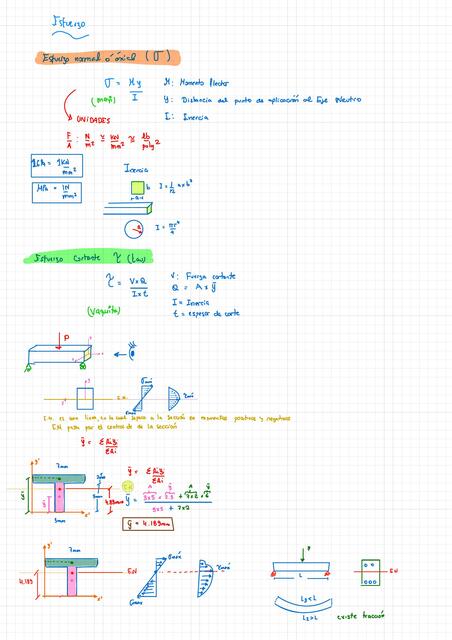 Esfuerzo
Esfuerzo normal ó áxial (σ)
σ = My / I
(moñi)
M: Momento flector
y: Distancia del punto de aplicación al Eje Neutro
I: Inercia
UNIDADES
F/A : N/m² ≚ kN/mm² ≚ lb/pulg 2
1GPa = 1kN/mm²
MPa = 1N/mm²
Inercia
b
I = 1/12 a x b³
I = πr⁴/4
Esfuerzo Cortante τ (tau)
τ = V x Q / I x t
(Vaquita)
V: Fuerza cortante
Q = A x ȳ
I = Inercia
t = espesor de corte
P
E.N.
σmáx
τmáx
E.N. es una línea, en la cual separa a la sección en momentos positivos y negativos
E.N. pasa por el centroide de la sección
ȳ = ΣAiȳi / ΣAi
y'
7mm
2mm
5mm
4.189mm
3mm
x'
ȳ = ΣAiȳi / ΣAi
ȳ = 3x5 x 2.5 + 7x2 x 6 / 3x5 + 7x2
ȳ = 4.189mm
y'
7mm
4.189
x'
E.N
σmáx
σmáx
τmáx
P
L
L2 > L
L2 > L
E.N
existe tracción